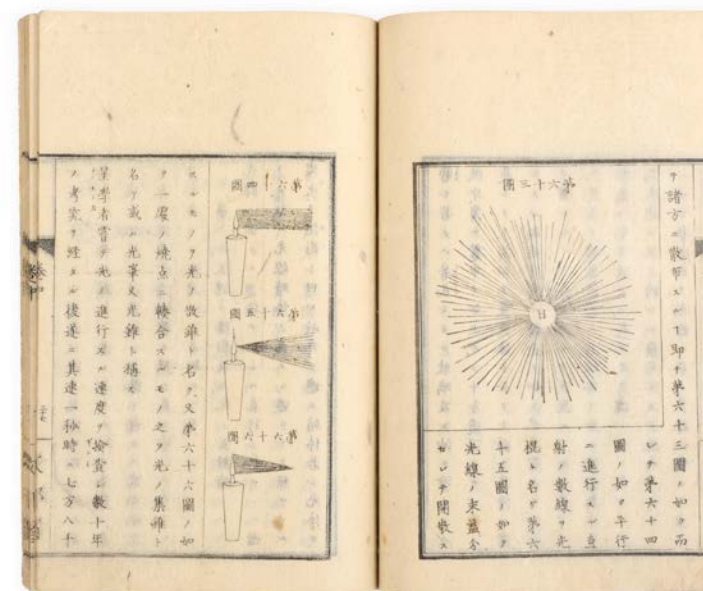 ヲ諸方ニ散布スルヿ即チ第六十三圖ノ如シ而
第六十三圖
H
シテ第六十四
圖ノ如ク平行
ニ進行スル直
射ノ數線ヲ光
棍ト名ケ第六
十五圖ノ如ク
光線ノ末益分
シテ開散ス
第六十四圖
第六十五圖
第六十六圖
スルモノヲ光ノ散錐ト名ク又第六十六圖ノ如
ク一處ノ燒点ニ輳合スルモノ之ヲ光ノ集錐ト
名ク或ハ光筆又光錐ト稱ス
星學者嘗テ光ノ進行スル速度ヲ檢査シ數十年
ノ考究ヲ經タル後遂ニ其速一秒時ニ七万八十
卷四